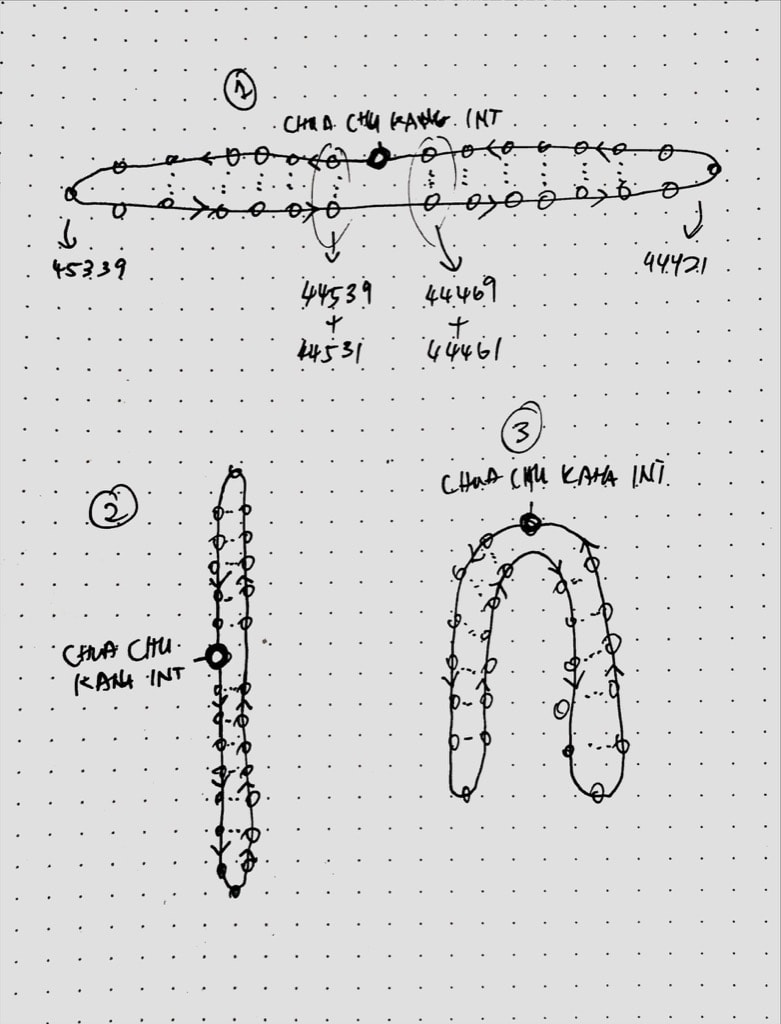 1
CHUA CHU KANG INT
45339
44421
44539
+
44531
44469
+
44461
3
CHUA CHU KANG INT
2
CHUA CHU
KANG INT